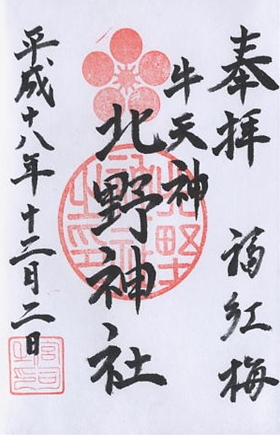 奉拝
福紅梅
牛天神
北野神社
平成十八年十二月二日